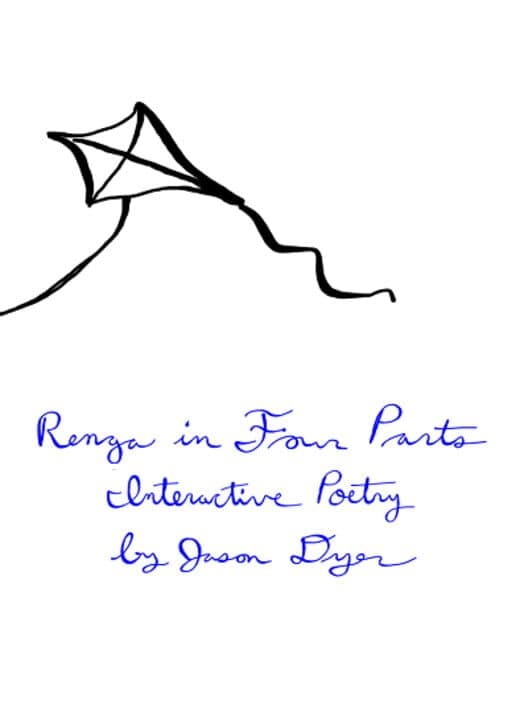 Renga in Four Parts
Interactive Poetry
by Jason Dyer